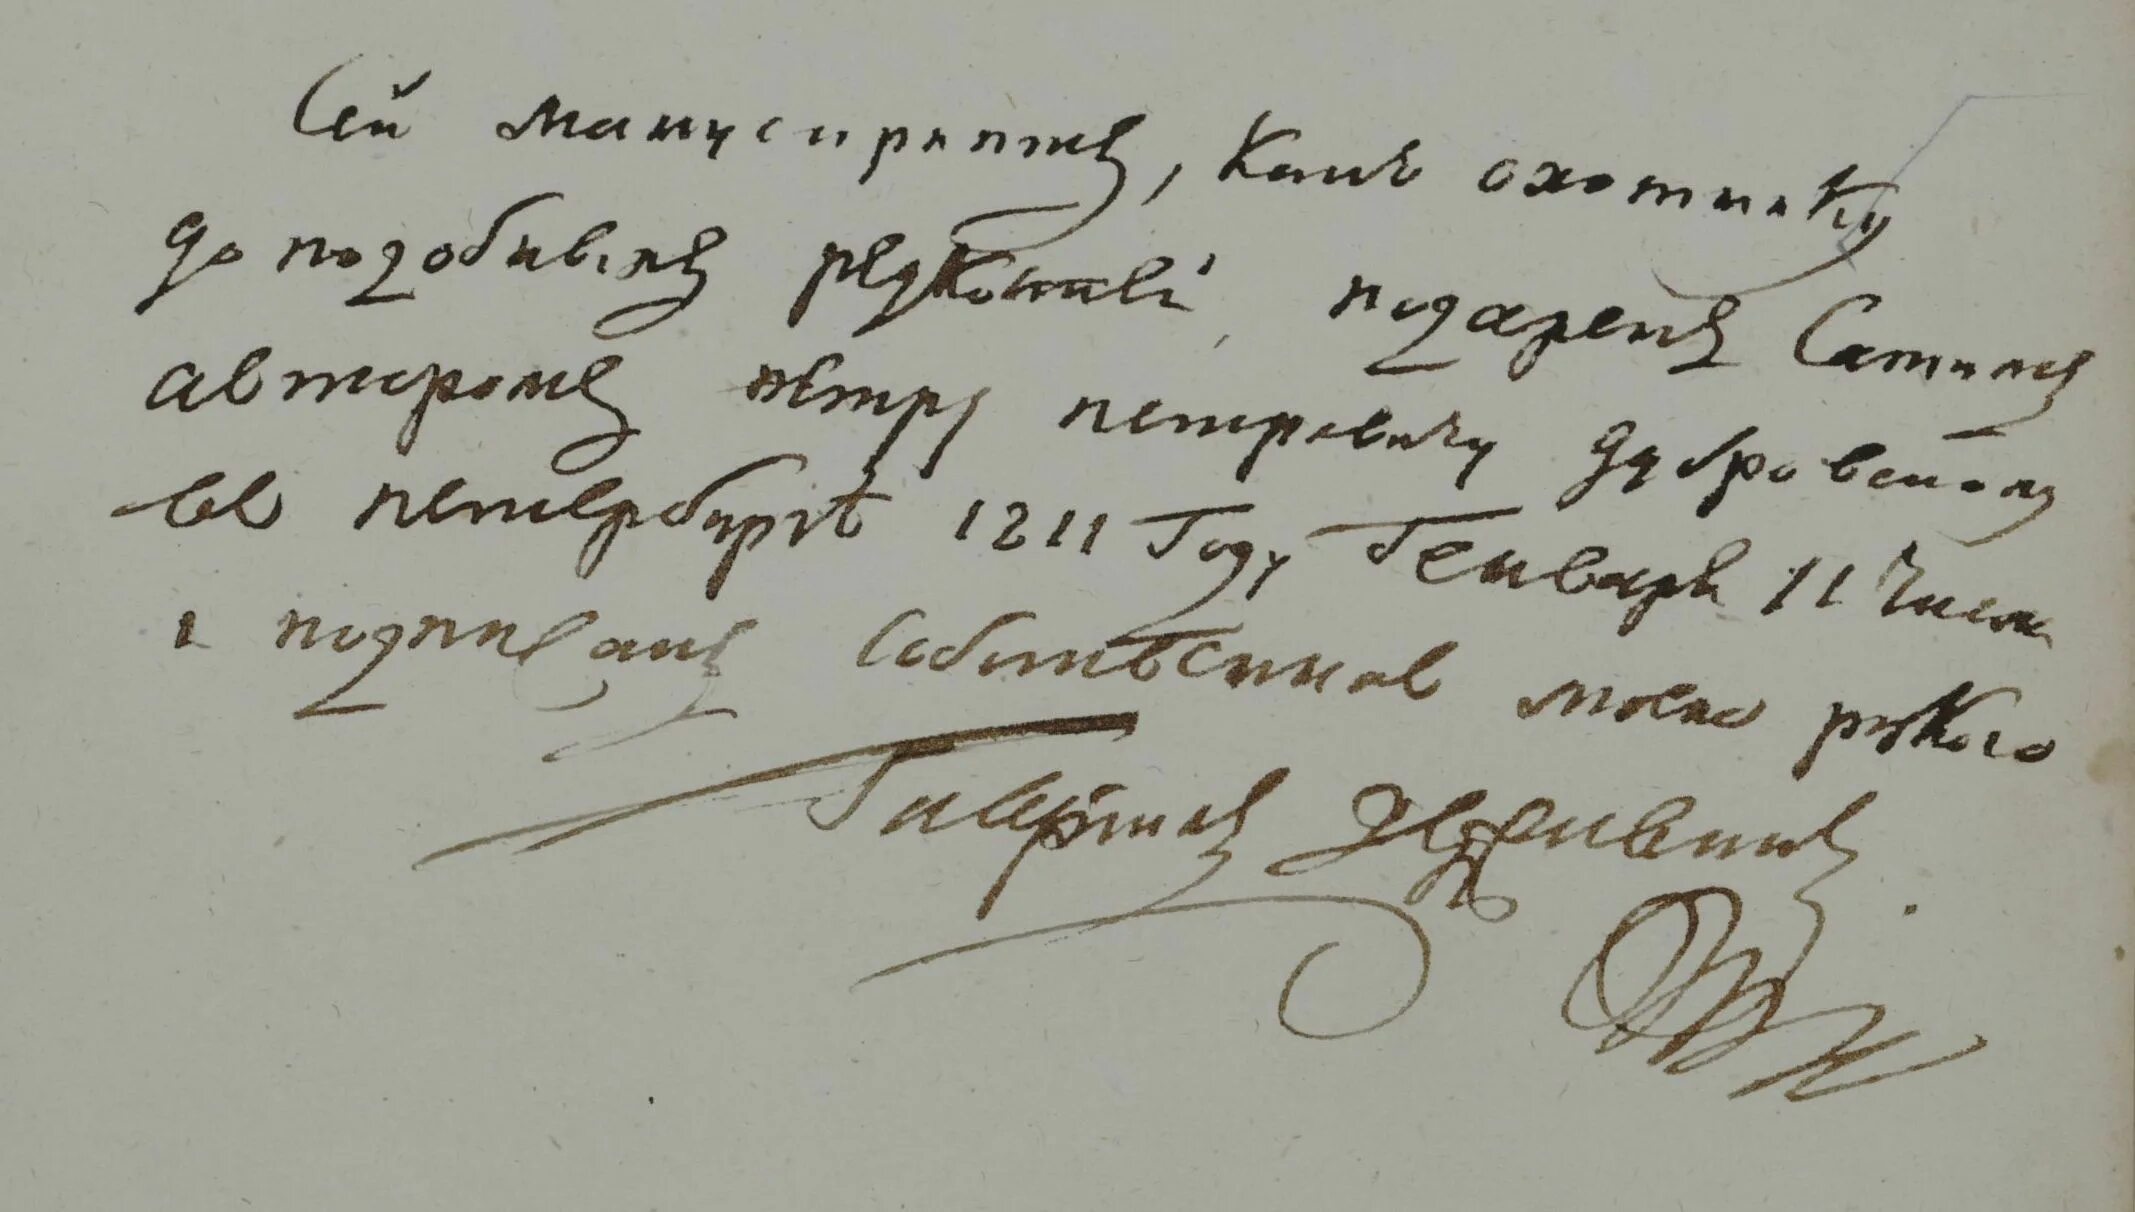 Сей манускриптъ, какъ охотнику
до подобныхъ редкостей, подаренъ Самимъ
авторомъ петру петровичу дубровскому
въ петербургѣ 1811 Году Генваря 11 числа
и подписанъ Собственною моею рукою
Гавріилъ Державинъ.